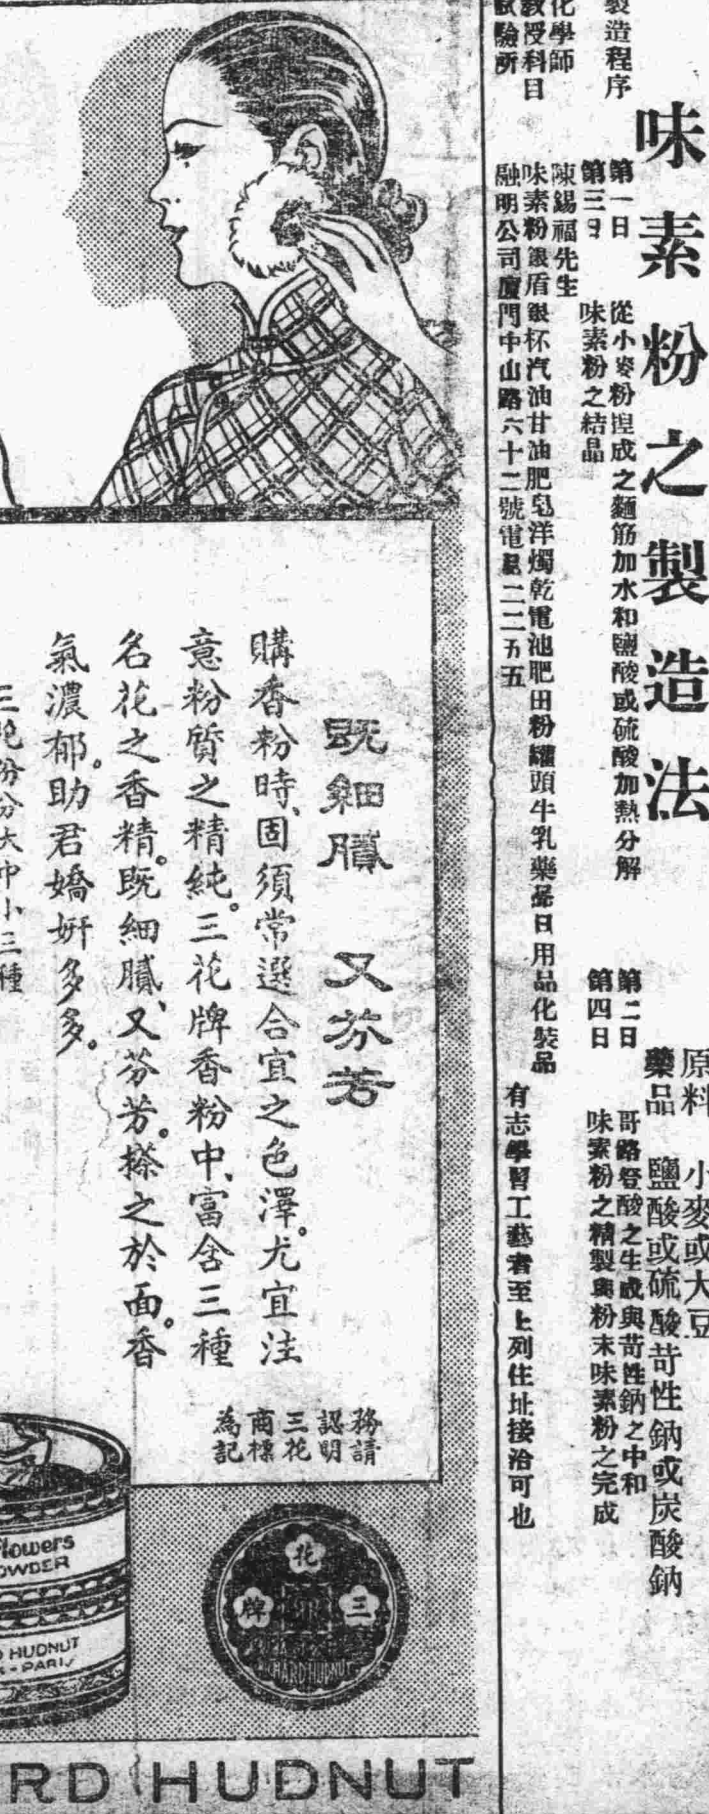 味素粉之製造法
原料 小麥或大豆
藥品 鹽酸或硫酸苛性鈉或炭酸鈉
製造程序
第一日 從小麥粉捏成之麵筋加水和鹽酸或硫酸加熱分解
第二日 哥路登酸之生成與苛性鈉之中和
第三日 味素粉之結晶
第四日 味素粉之精製與粉末味素粉之完成
化學師 陳錫福先生
教授科目 味素粉銀盾銀杯汽油甘油肥皂洋燭乾電池肥田粉罐頭牛乳藥品日用品化裝品
試驗所 融明公司廈門中山路六十二號電 二二五五
有志學習工藝者至上列住址接洽可也
既細膩 又芬芳
購香粉時、固須常選合宜之色澤。尤宜注
意粉質之精純。三花牌香粉中、富含三種
名花之香精。既細膩、又芬芳。搽之於面。香
氣濃郁。助君嬌妍多多。
三花粉分大中小三種
務請
認明
三花
商標
為記
三花牌
RICHARD HUDNUT
Flowers
POWDER
HUDNUT
PARIS
RD HUDNUT